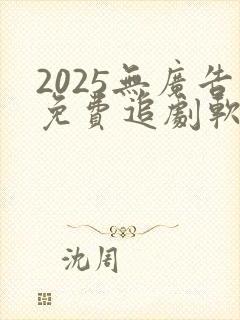 2025無廣告
免費追劇軟
沈周